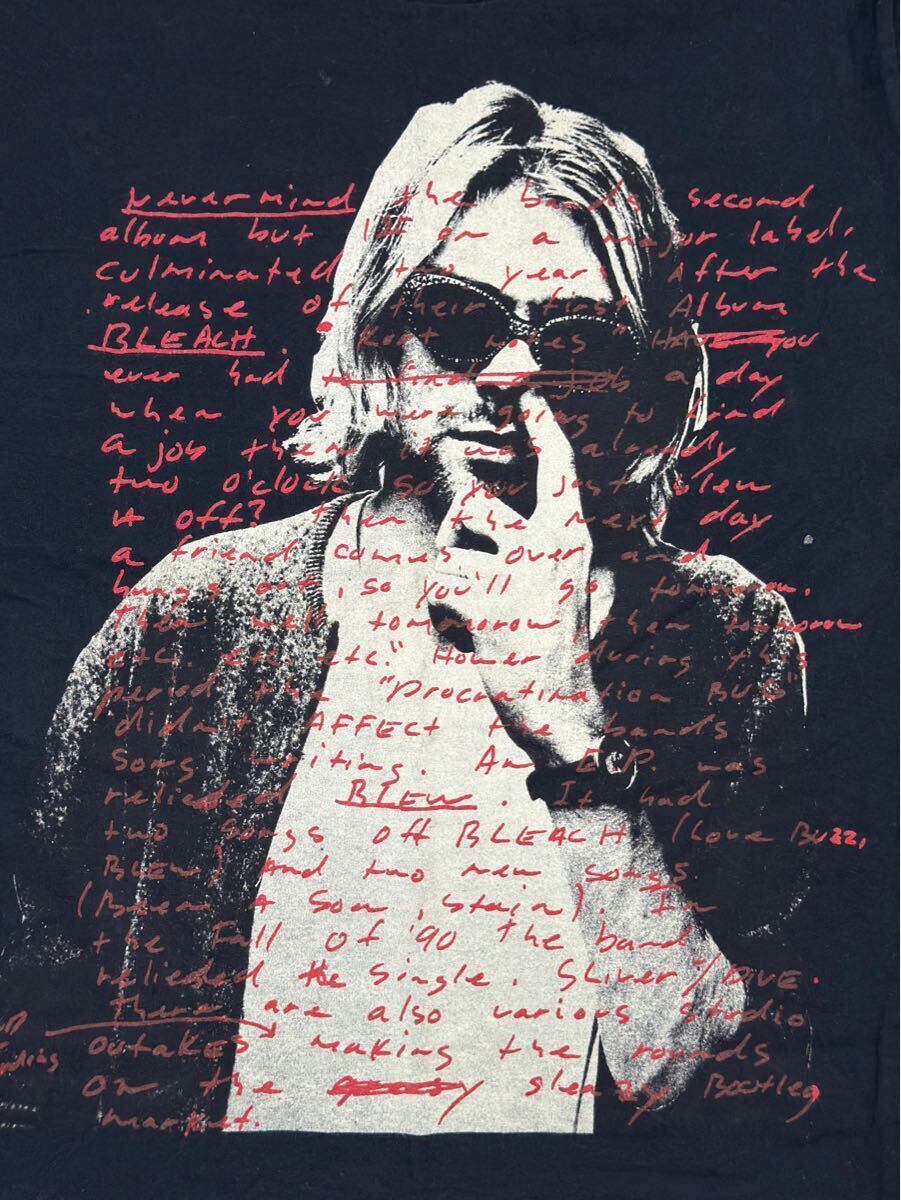 Nevermind the bands second
album but 1st on a major label,
culminated two years After the
release of their first Album
BLEACH. "Kurt notes" HAVE you
ever had to find a job a day
when you were going to find
a job then it was already
two o'clock so you just blew
it off? then the next day
a friend comes over and
hangs out, so you'll go tomorrow.
Then well tomorrow, then tomorrow
etc. etc. etc." Hower during this
period the "Procratination BUG"
didnt AFFECT the bands
Song writing. An E.P. was
relieded BLEW. It had
two Songs off BLEACH (Love Buzz,
BLEW) And two new songs
(Been A Son, Stain). In
the Fall of '90 the band
relieded the Single. SLIVER"/DIVE.
there are also various studio
outakes making the rounds
on the sleazy Bootleg
market.